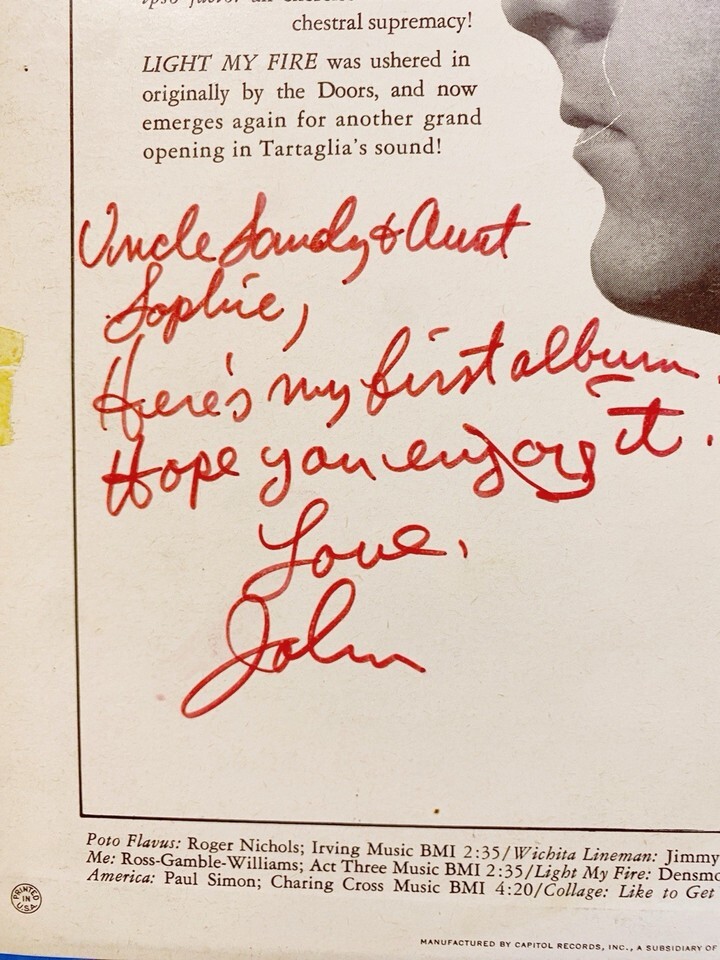 chestral supremacy!
LIGHT MY FIRE was ushered in
originally by the Doors, and now
emerges again for another grand
opening in Tartaglia's sound!
Uncle Sandy & Aunt
Sophie,
Here's my first album.
Hope you enjoy it.
Love,
John
Poto Flavus: Roger Nichols; Irving Music BMI 2:35/Wichita Lineman: Jimmy
Me: Ross-Gamble-Williams; Act Three Music BMI 2:35/Light My Fire: Densmo
America: Paul Simon; Charing Cross Music BMI 4:20/Collage: Like to Get
PRINTED IN U.S.A.
MANUFACTURED BY CAPITOL RECORDS, INC., A SUBSIDIARY OF